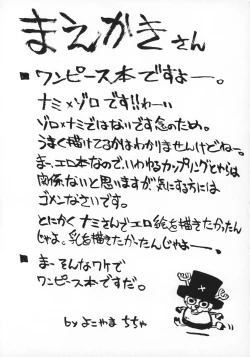 まえがきさん
■ワンピース本ですよー。
ナミ×ゾロです!!わーい
ゾロ×ナミではないです念のため。
うまく描けてるかはわかりませんけどねー。
まー、エロ本なので、いわゆるカップリングとやらは
関係ないと思いますが気にする方には
ゴメンなさいです。
とにかくナミさんでエロ絵を描きたかったん
じゃよ。乳を描きたかったんじゃよー。
■まーそんなワケで
ワンピース本ですだ。
by よこやまちちゃ